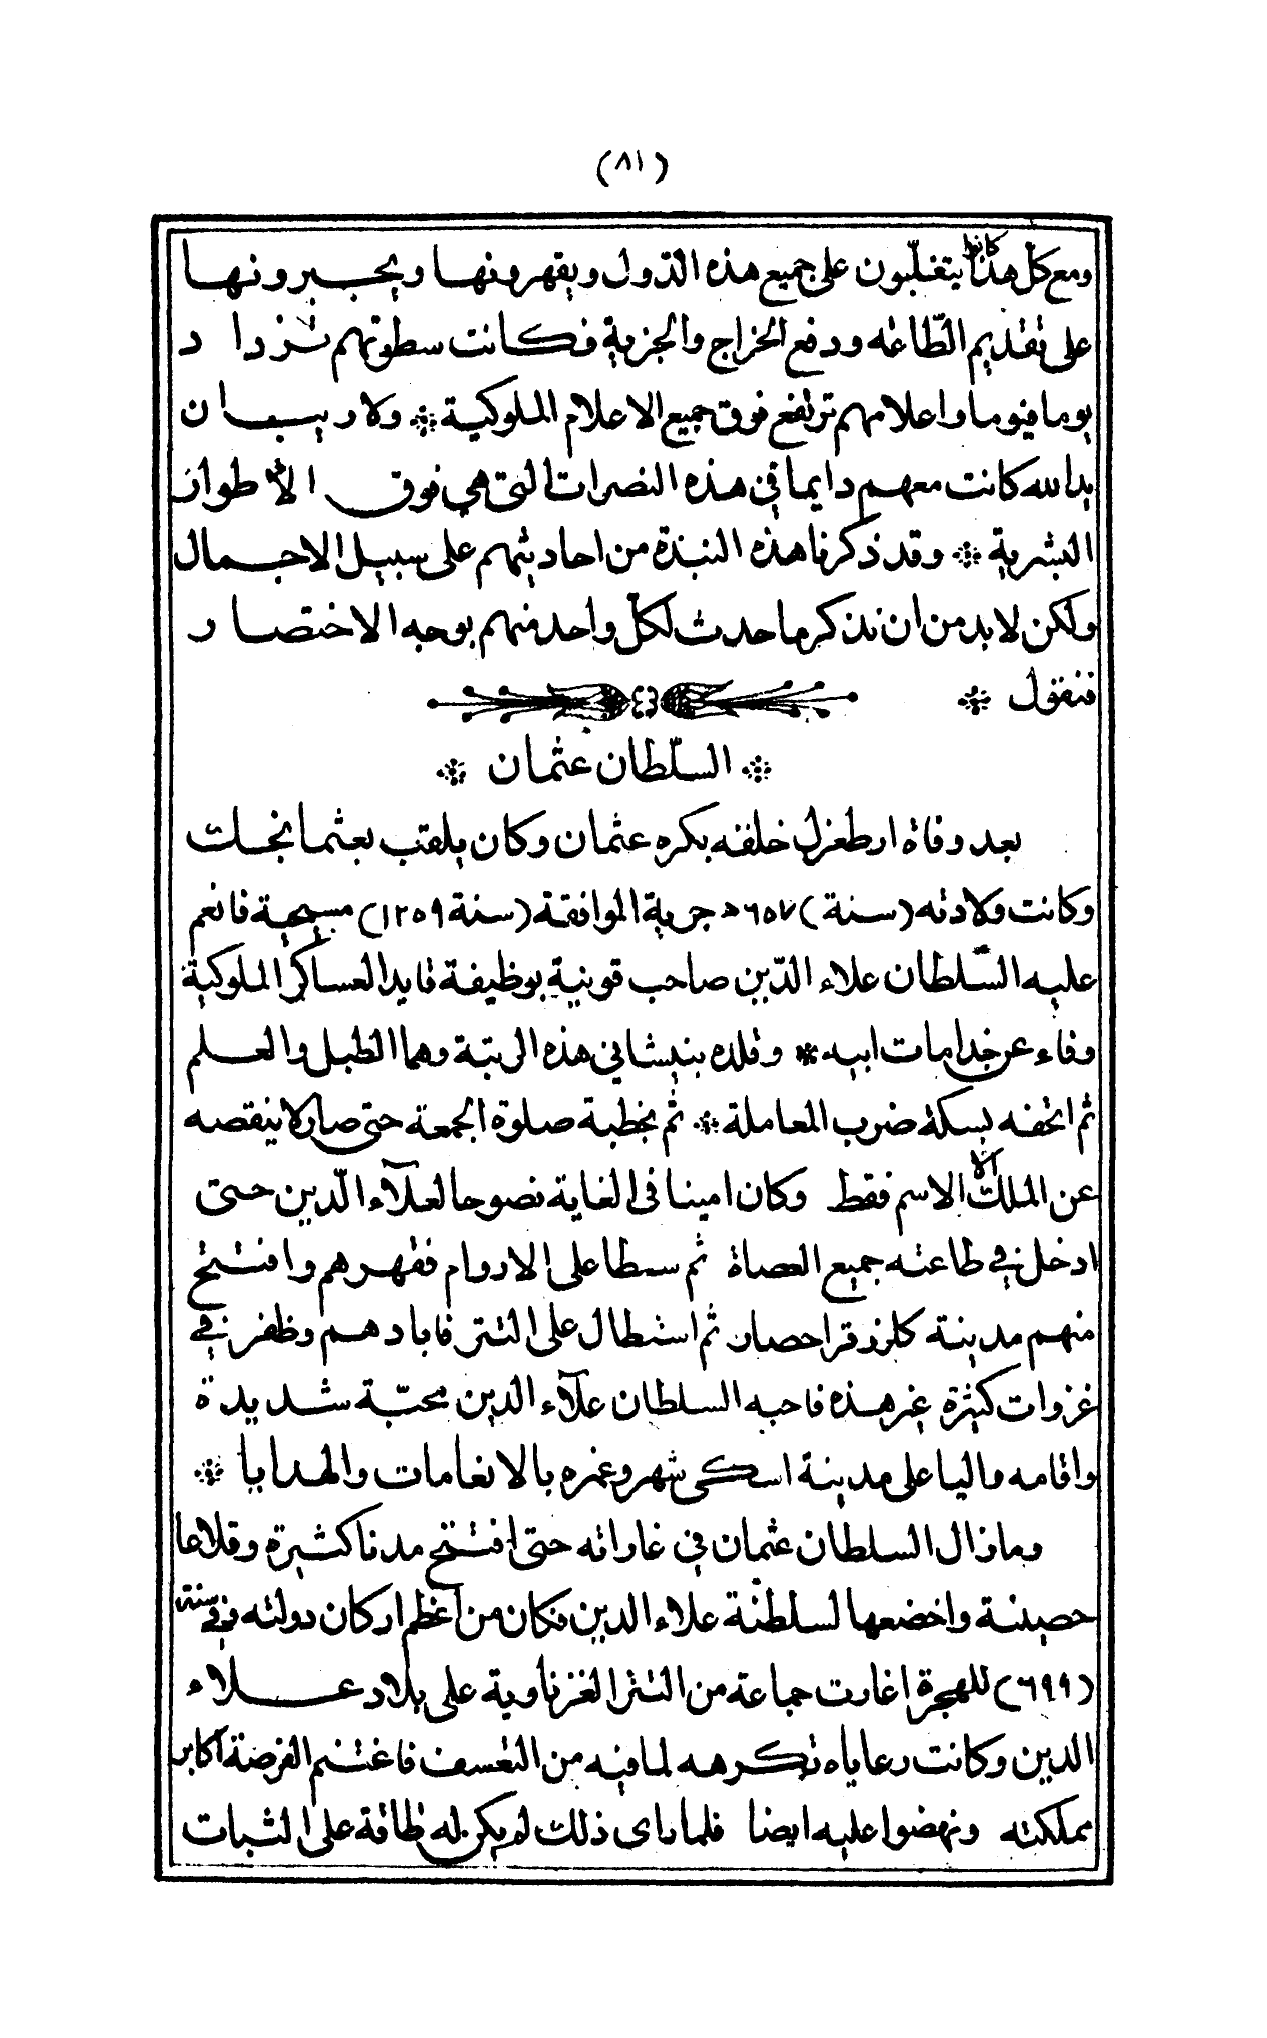 (٨١)
ومع كلّ هذا كانوا يتغلّبون على جميع هذه الدّول ويقهرونها ويجبرونها
على تقديم الطّاعه ودفع الخراج والجزية فكانت سطوتهم تزداد
يوما فيوما واعلامهم ترتفع فوق جميع الاعلام الملوكية * ولاريب ان
يد الله كانت معهم دايما في هذه النصرات التي هي فوق الاطوار
البشرية * وقد ذكرنا هذه النبذة من احاديثهم على سبيل الاجمال
ولكن لابد من ان نذكر ما حدث لكلّ واحد منهم بوجه الاختصار
فنقول *
* السلّطان عثمان *
بعد وفاة ارطغرل خلفه بكره عثمان وكان يلقب بعثمانجك
وكانت ولادته (سنة) ٦٥٧ هجرية الموافقة (سنة ١٢٥٩) مسيحية فانعم
عليه السّلطان علاء الدّين صاحب قونية بوظيفة قايد العساكر الملوكية
وفاء عن خدامات ابيه * وقلده بنيشاني هذه الرتبة وهما الطبل والعلم
ثم اتحفه بسكة ضرب المعاملة * ثم بخطبة صلوة الجمعة حتى صار لا ينقصه
عن الملك الا الاسم فقط وكان امينا في الغاية نصوحا لعلآء الدّين حتى
ادخل في طاعته جميع العصاة ثم سطا على الاروام فقهرهم وافتتح
منهم مدينة كلزوقراحصار ثم استطال على التتر فابادهم وظفر في
غزوات كثيرة غير هذه فاحبه السلطان علآء الدين محبّة شديدة
واقامه واليا على مدينة اسكى شهر وغمره بالانعامات والهدايا *
ومازال السلطان عثمان في غاراته حتى افتتح مدنا كثيرة وقلاعا
حصينة واخضعها لسلطنة علاء الدين فكان من اعظم اركان دولته وفي سنة
(٦٩٩) للهجرة اغارت جماعة من التتر الغزناوية على بلاد علاء
الدين وكانت رعاياه تكرهه لما فيه من التعسف فاغتنم الفرصة اكابر
مملكته ونهضوا عليه ايضا فلما راى ذلك لم يكن له طاقة على الثبات